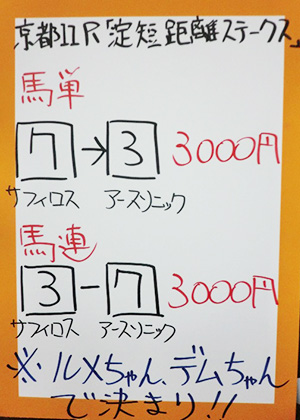 京都11R「淀短距離ステークス」
馬単
7→3 3000円
サフィロス アースソニック
馬連
3-7 3000円
サフィロス アースソニック
※ルメちゃん、デムちゃん
で決まり!!